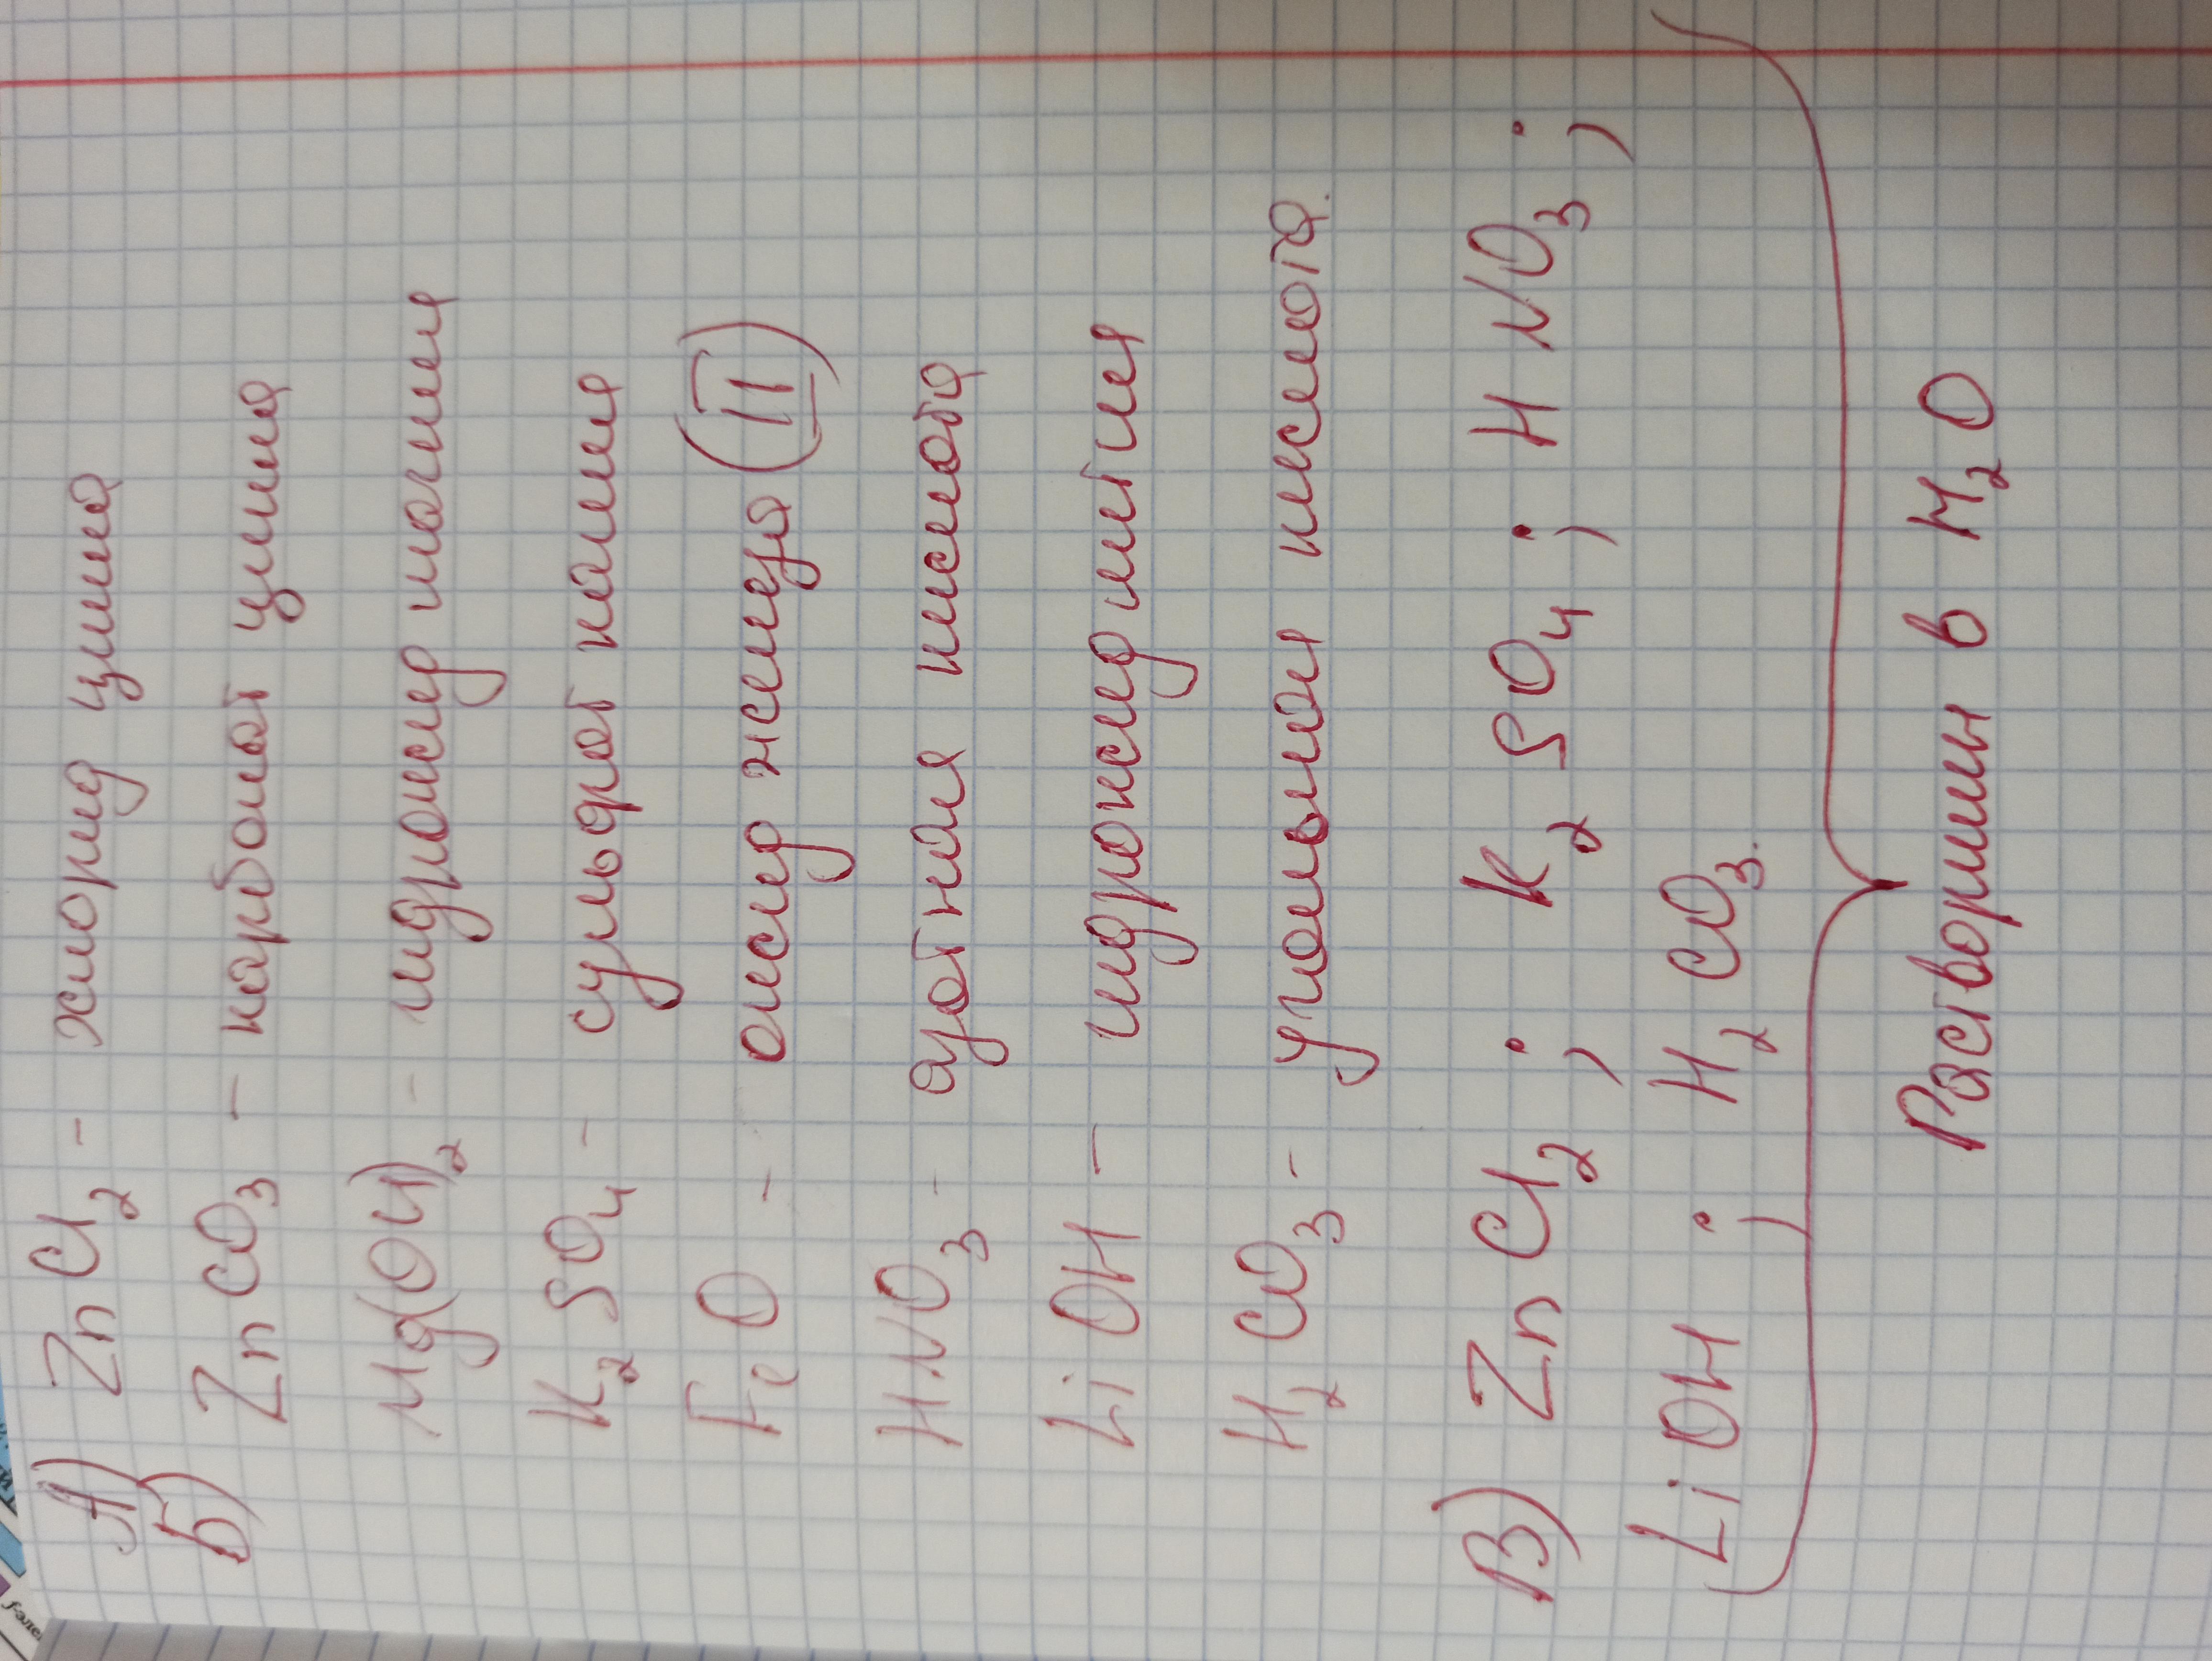 А) ZnCl₂ - хлорид цинка
Б) ZnCO₃ - карбонат цинка
Mg(OH)₂ - гидроксид магния
K₂SO₄ - сульфат калия
FeO - оксид железа (II)
HNO₃ - азотная кислота
LiOH - гидроксид лития
H₂CO₃ - угольная кислота.
В) ZnCl₂ ; K₂SO₄ ; HNO₃ ;
LiOH ; H₂CO₃.
Растворимы в H₂O